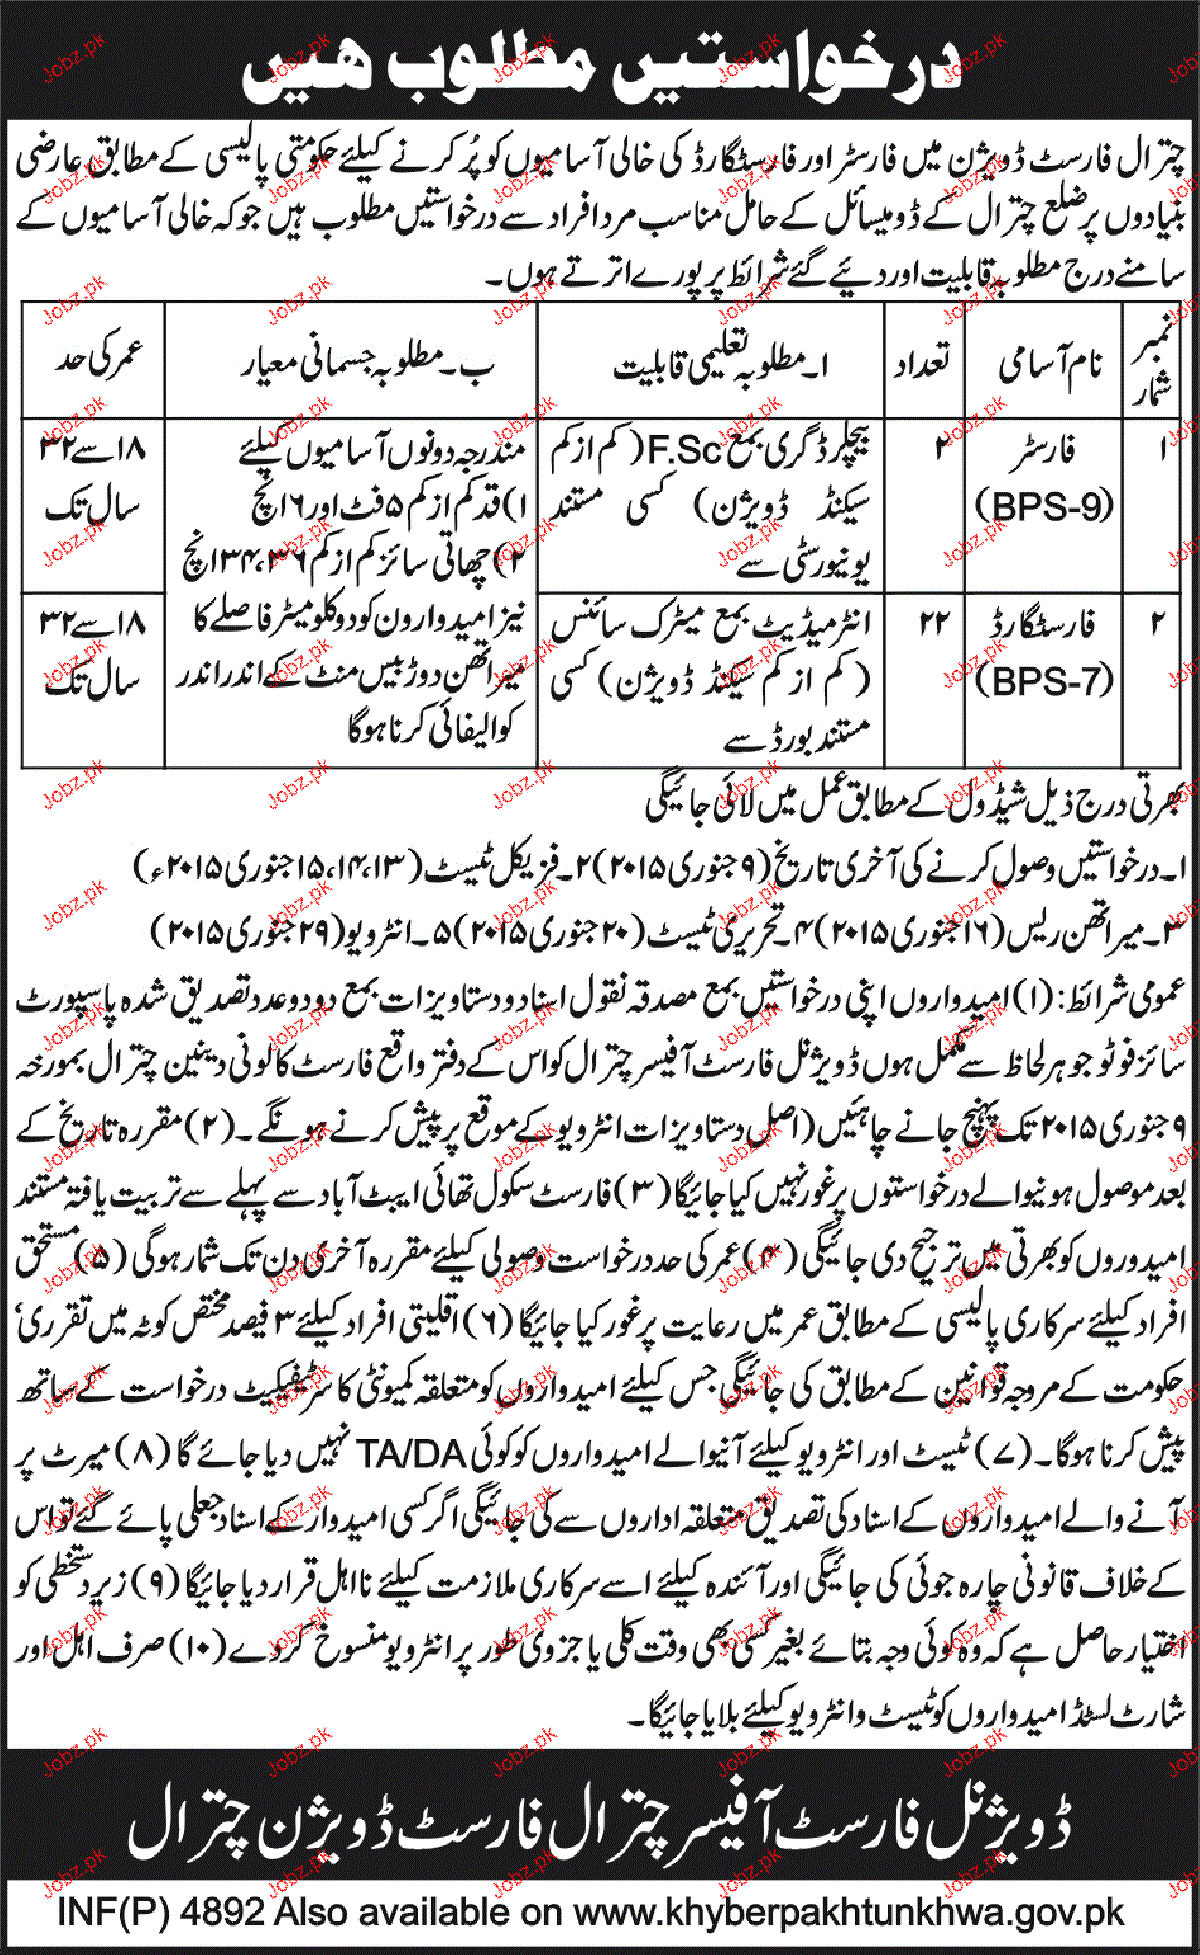 درخواستیں مطلوب ھیں
چترال فارسٹ ڈویژن میں فارسٹر اور فارسٹگارڈ کی خالی آسامیوں کو پُر کرنے کیلئے حکومتی پالیسی کے مطابق عارضی
بنیادوں پر ضلع چترال کے ڈومیسائل کے حامل مناسب مرد افراد سے درخواستیں مطلوب ہیں جو کہ خالی آسامیوں کے
سامنے درج مطلوبہ قابلیت اور دئیے گئے شرائط پر پورے اترتے ہوں۔
نمبر شمار
نام آسامی
تعداد
ا۔ مطلوبہ تعلیمی قابلیت
ب۔ مطلوبہ جسمانی معیار
عمر کی حد
۱
فارسٹر
(BPS-9)
۲
بیچلر ڈگری بمع F.Sc (کم از کم
سیکنڈ ڈویژن) کسی مستند
یونیورسٹی سے
مندرجہ دونوں آسامیوں کیلئے
۱) قد کم از کم ۵ فٹ اور ۶ انچ
۲) چھاتی سائز کم از کم ۳۴،۳۶ انچ
نیز امیدوارون کو دو کلو میٹر فاصلے کا
میراتھن دوڑ بیس منٹ کے اندر اندر
کوالیفائی کرنا ہوگا
۱۸ سے ۳۲
سال تک
۲
فارسٹگارڈ
(BPS-7)
۲۲
انٹرمیڈیٹ بمع میٹرک سائنس
(کم از کم سیکنڈ ڈویژن) کسی
مستند بورڈ سے
۱۸ سے ۳۲
سال تک
بھرتی درج ذیل شیڈول کے مطابق عمل میں لائی جائیگی
۱۔ درخواستیں وصول کرنے کی آخری تاریخ (۹ جنوری ۲۰۱۵) ۲۔ فزیکل ٹیسٹ (۱۳،۱۴،۱۵ جنوری ۲۰۱۵ء)
۳۔ میراتھن ریس (۱۶ جنوری ۲۰۱۵) ۴۔ تحریری ٹیسٹ (۲۰ جنوری ۲۰۱۵) ۵۔ انٹرویو (۲۹ جنوری ۲۰۱۵)
عمومی شرائط: (۱) امیدواروں اپنی درخواستیں بمع مصدقہ نقول اسناد و دستاویزات بمع دو دو عدد تصدیق شدہ پاسپورٹ
سائز فوٹو جو ہر لحاظ سے مکمل ہوں ڈویژنل فارسٹ آفیسر چترال کو اس کے دفتر واقع فارسٹ کالونی دینین چترال بمورخہ
۹ جنوری ۲۰۱۵ تک پہنچ جانے چاہئیں (اصل دستاویزات انٹرویو کے موقع پر پیش کرنے ہونگے۔ (۲) مقررہ تاریخ کے
بعد موصول ہونیوالے درخواستوں پر غور نہیں کیا جائیگا (۳) فارسٹ سکول تھائی ایبٹ آباد سے پہلے سے تربیت یافتہ مستند
امیدوروں کو بھرتی میں ترجیح دی جائیگی (۴) عمر کی حد درخواست وصولی کیلئے مقررہ آخری دن تک شمار ہوگی (۵) مستحق
افراد کیلئے سرکاری پالیسی کے مطابق عمر میں رعایت پر غور کیا جائیگا (۶) اقلیتی افراد کیلئے ۳ فیصد مختص کوٹہ میں تقرری'
حکومت کے مروجہ قوانین کے مطابق کی جائیگی جس کیلئے امیدواروں کو متعلقہ کمیونٹی کا سرٹیفیکیٹ درخواست کے ساتھ
پیش کرنا ہوگا۔ (۷) ٹیسٹ اور انٹرویو کیلئے آنیوالے امیدواروں کو کوئی TA/DA نہیں دیا جائے گا (۸) میرٹ پر
آنے والے امیدواروں کے اسناد کی تصدیق متعلقہ اداروں سے کی جائیگی اگر کسی امیدوار کے اسناد جعلی پائے گئے تو اس
کے خلاف قانونی چارہ جوئی کی جائیگی اور آئندہ کیلئے اسے سرکاری ملازمت کیلئے نااہل قرار دیا جائیگا (۹) زیر دستخطی کو
اختیار حاصل ہے کہ وہ کوئی وجہ بتائے بغیر کسی بھی وقت کلی یا جزوی طور پر انٹرویو منسوخ کر دے (۱۰) صرف اہل اور
شارٹ لسٹڈ امیدواروں کو ٹیسٹ و انٹرویو کیلئے بلایا جائیگا۔
ڈویژنل فارسٹ آفیسر چترال فارسٹ ڈویژن چترال
INF(P) 4892 Also available on www.khyberpakhtunkhwa.gov.pk
Jobz.pk